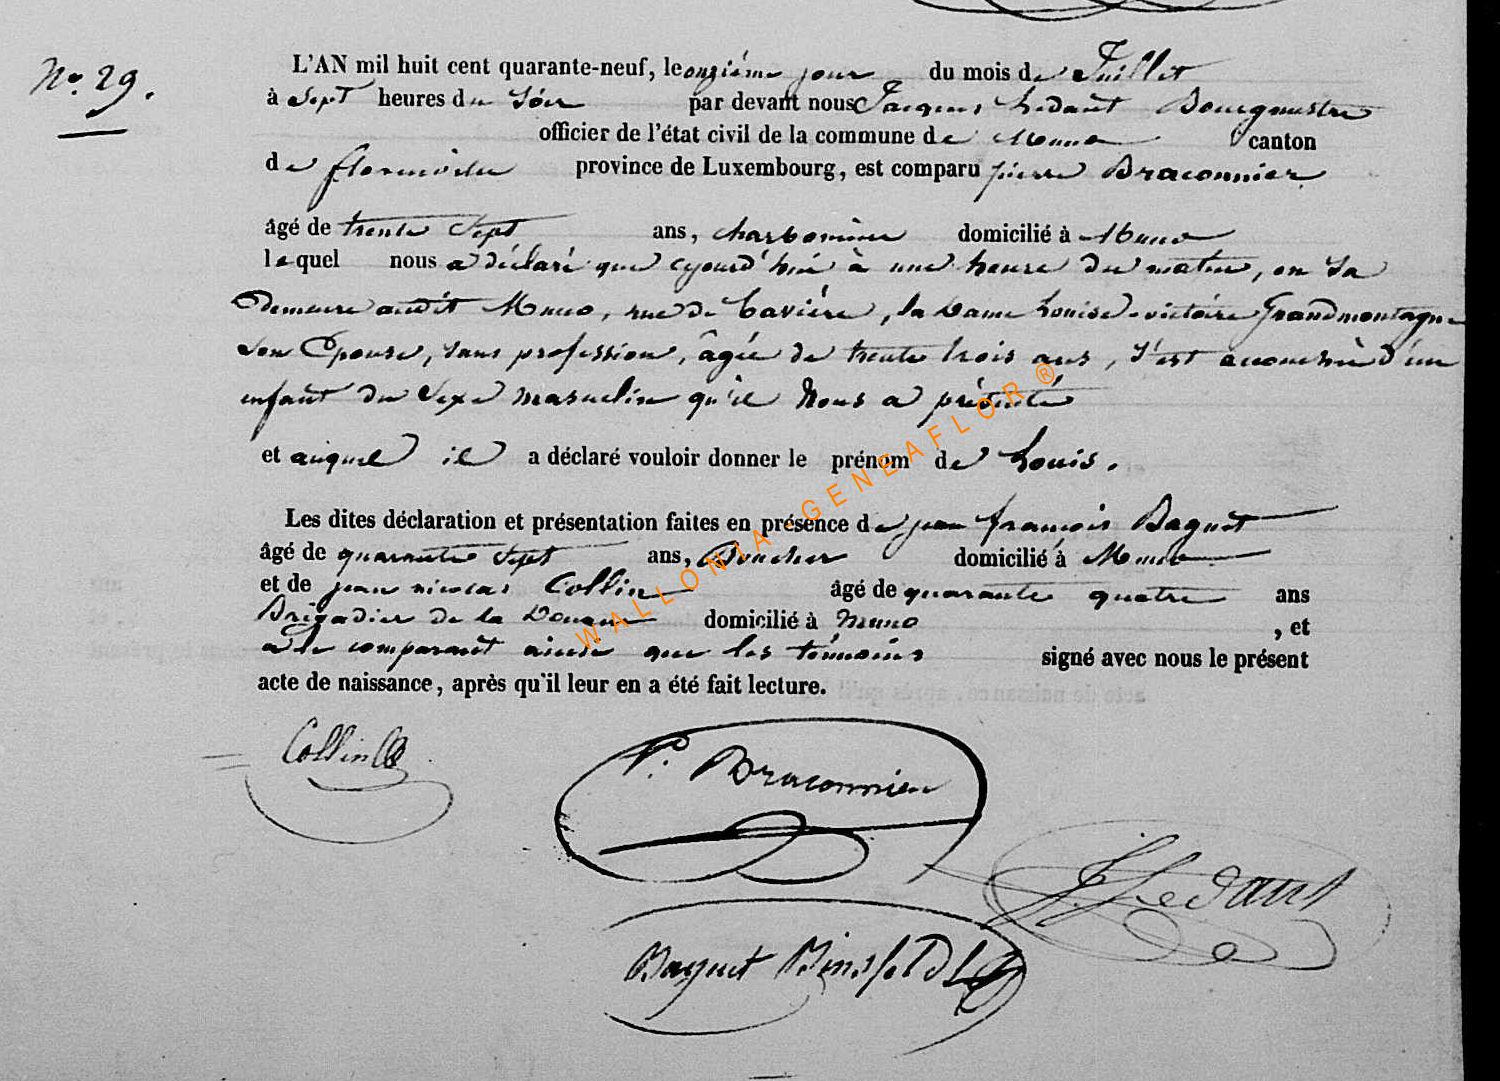 No. 29.
L'AN mil huit cent quarante-neuf, le onziéme jour du mois de Juillet
à Sept heures du Sóir par devant nous Jacques Ledant Bourgmestre
officier de l'état civil de la commune de Muno canton
de florenville province de Luxembourg, est comparu pierre Braconnier
âgé de trente Sept ans, charbonnier domicilié à Muno
lequel nous a déclaré que cejourd'hui à une heure du matin, en Sa
Demeure audit Muno, rue de Caviére, la Dame Louise-victoire Grandmontagne
Son Epouse, Sans profession, âgée de trente trois ans, S'est accouchée d'un
enfant du Sexe masculin qu'il Nous a présenté
et auquel il a déclaré vouloir donner le prénom de Louis.
Les dites déclaration et présentation faites en présence de jean françois Baguet
âgé de quarante Sept ans, Boucher domicilié à Muno
et de jean nicolas Collin âgé de quarante quatre ans
Brigadier de la Douane domicilié à Muno , et
a le comparant ainsi que les témoins signé avec nous le présent
acte de naissance, après qu'il leur en a été fait lecture.
Collin
P. Braconnier
J. Ledant
Baguet Binsfeld
WALLONIA-GENEAFLOR ®